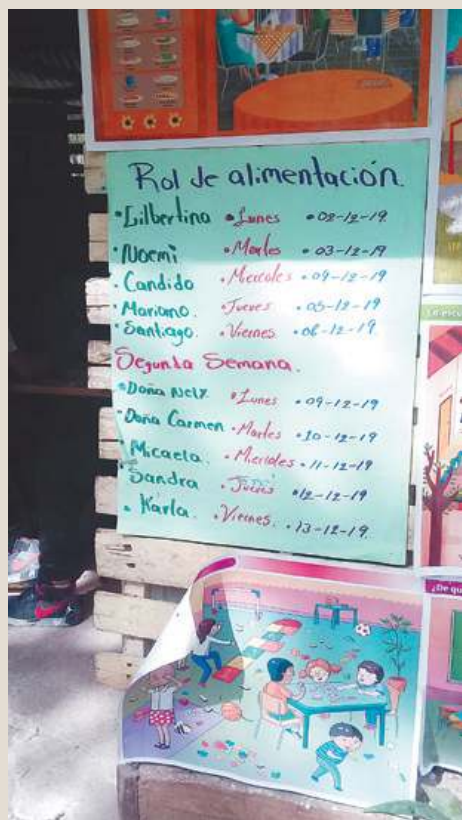 Rol de alimentación
• Gilbertina • Lunes • 02-12-19
• Noemi • Martes • 03-12-19
• Candido • Miercoles • 04-12-19
• Mariano. • Jueves • 05-12-19
• Santiago. • Viernes • 06-12-19
Segunda Semana.
• Doña Nely • Lunes • 09-12-19
• Doña Carmen • Martes • 10-12-19
• Micaela. • Miercoles • 11-12-19
Sandra • Jueves • 12-12-19
• Karla. • Viernes. • 13-12-19
¿De qu